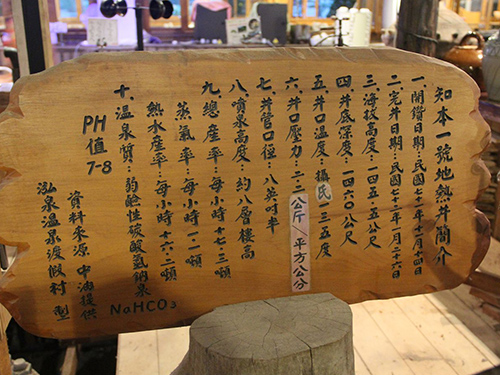 知本一號地熱井簡介
一、開鑽日期：民國七十二年十月十四日
二、完井日期：民國七十三年一月二十六日
三、海拔高度：一四五．五公尺
四、井底深度：一四六０公尺
五、井口溫度：攝氏一三五度
六、井口壓力：二．二公斤／平方公分
七、井管口徑：八英吋半
八、噴泉高度：約八層樓高
九、總產率：每小時十七．三噸
蒸氣率：每小時一．一噸
熱水產率：每小時十六．二噸
十、溫泉質：弱鹼性碳酸氫鈉泉
NaHCO3
PH值7-8
資料來源 中油提供
泓泉溫泉渡假村 製